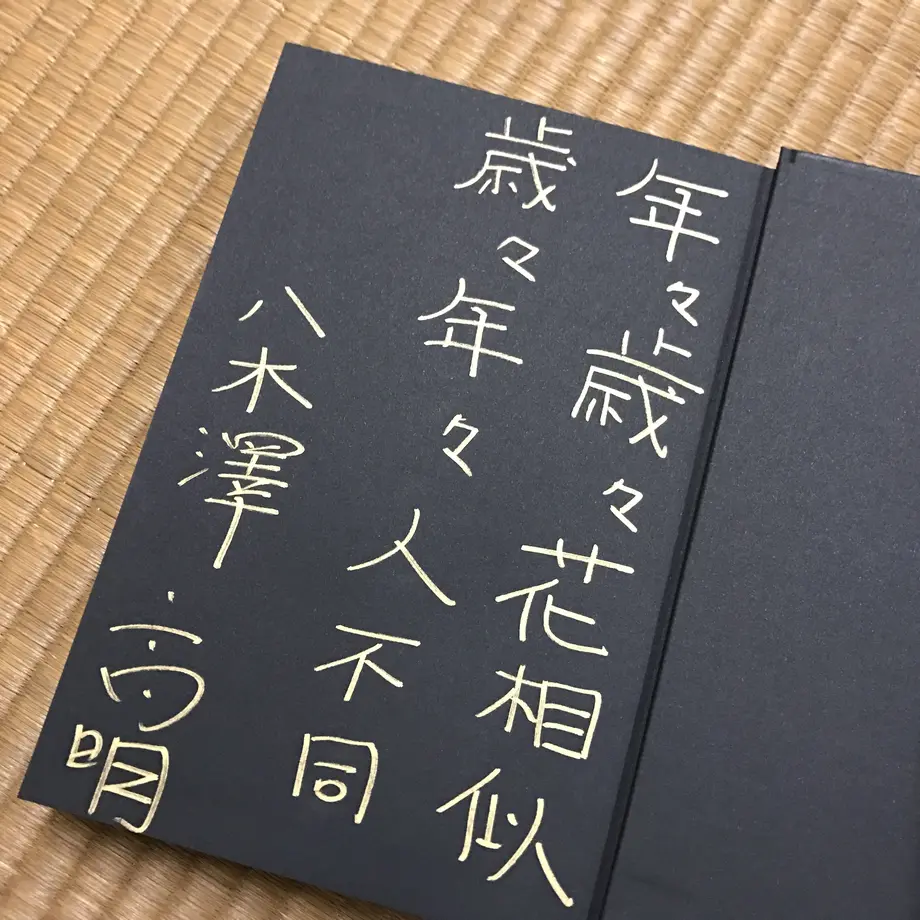 年々歳々花相似
歳々年々人不同
八木澤高明